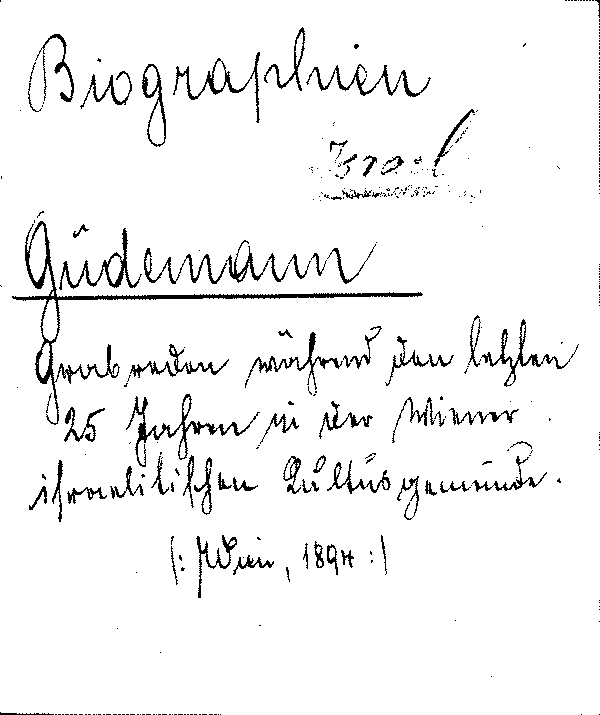 Biographien
Israel
Güdemann
Grabreden während den letzten
25 Jahren in der Wiener
israelitischen Kultusgemeinde.
(: Wien, 1894 :)